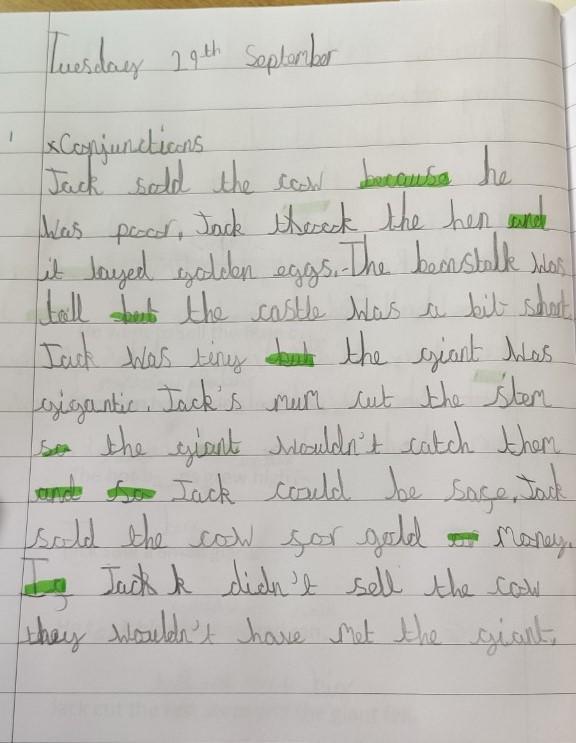 Tuesday 29th September
xConjunctions
Jack sold the cow because he
was poor, Jack the hen and
it layed golden eggs. The beanstalk was
tall but the castle was a bit short.
Jack was tiny but the giant was
gigantic. Jack's mum cut the stem
so the giant wouldn't catch them
and so Jack could be safe. Jack
sold the cow for gold or money.
If Jack k didn't sell the cow
they wouldn't have met the giant.